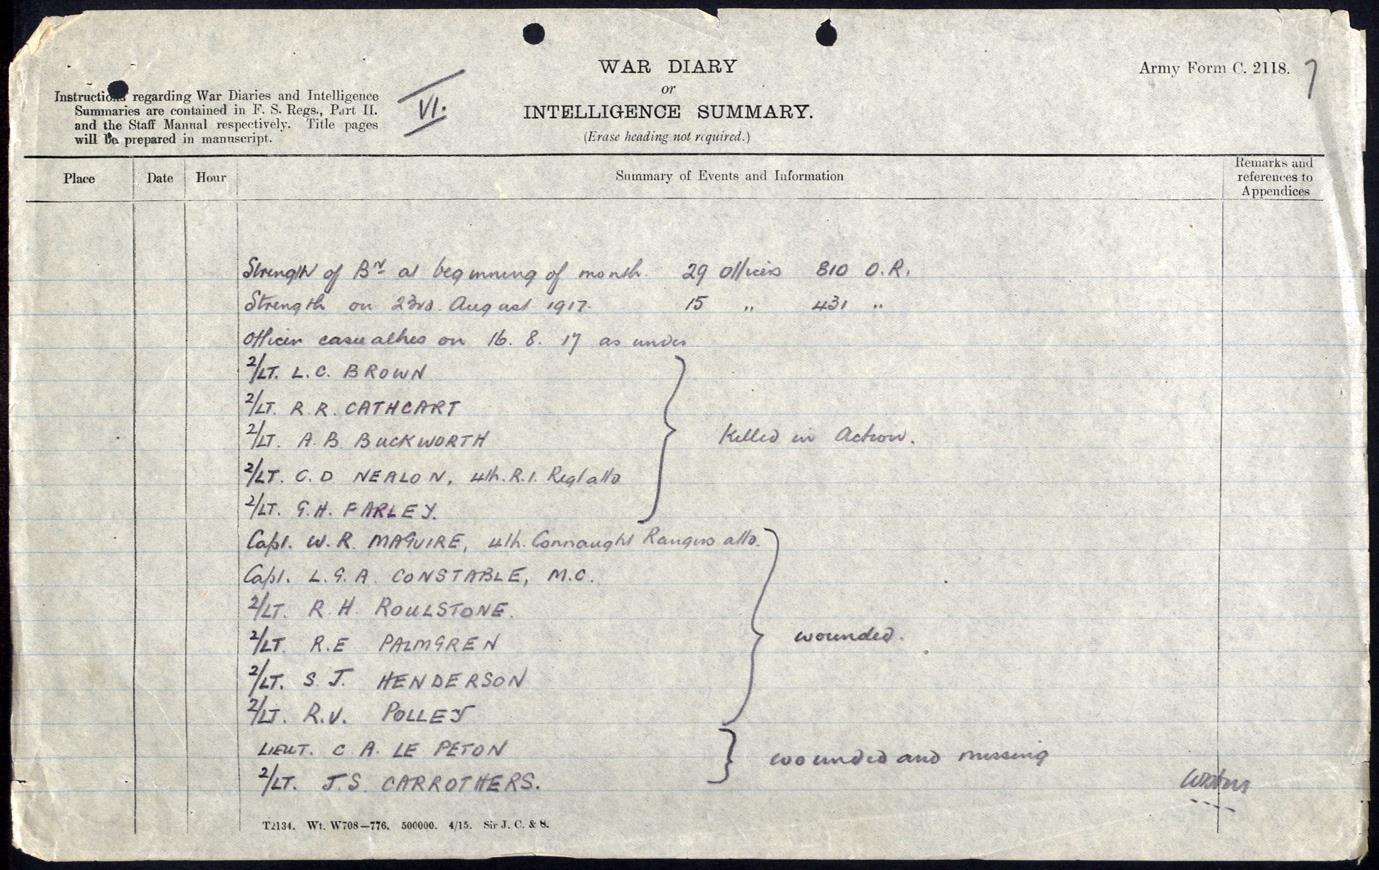 WAR DIARY
or
INTELLIGENCE SUMMARY.
(Erase heading not required.)
Army Form C. 2118.
7
Instructions regarding War Diaries and Intelligence
Summaries are contained in F. S. Regs., Part II.
and the Staff Manual respectively. Title pages
will be prepared in manuscript.
VI.
Place Date Hour Summary of Events and Information Remarks and references to Appendices
Strength of Bn at beginning of month. 29 Officers 810 O.R.
Strength on 23rd. August 1917. 15 " 431 "
Officer casualties on 16. 8. 17 as under
2/LT. L.C. BROWN
2/LT. R.R. CATHCART
2/LT. A.B. BUCKWORTH
2/LT. C.D NEALON, 4th. R.I. Regt atto
2/LT. G.H. FARLEY.
Killed in Action.
Capt. W.R. MAGUIRE, 4th. Connaught Rangers atto.
Capt. L.G.A. CONSTABLE, M.C.
2/LT. R.H. ROULSTONE.
2/LT. R.E PALMGREN
2/LT. S.J. HENDERSON
2/LT. R.V. POLLEY
wounded.
LIEUT. C A. LE PETON
2/LT. J.S. CARROTHERS.
wounded and missing
T2134. Wt. W708—776. 500000. 4/15. Sir J. C. & S.